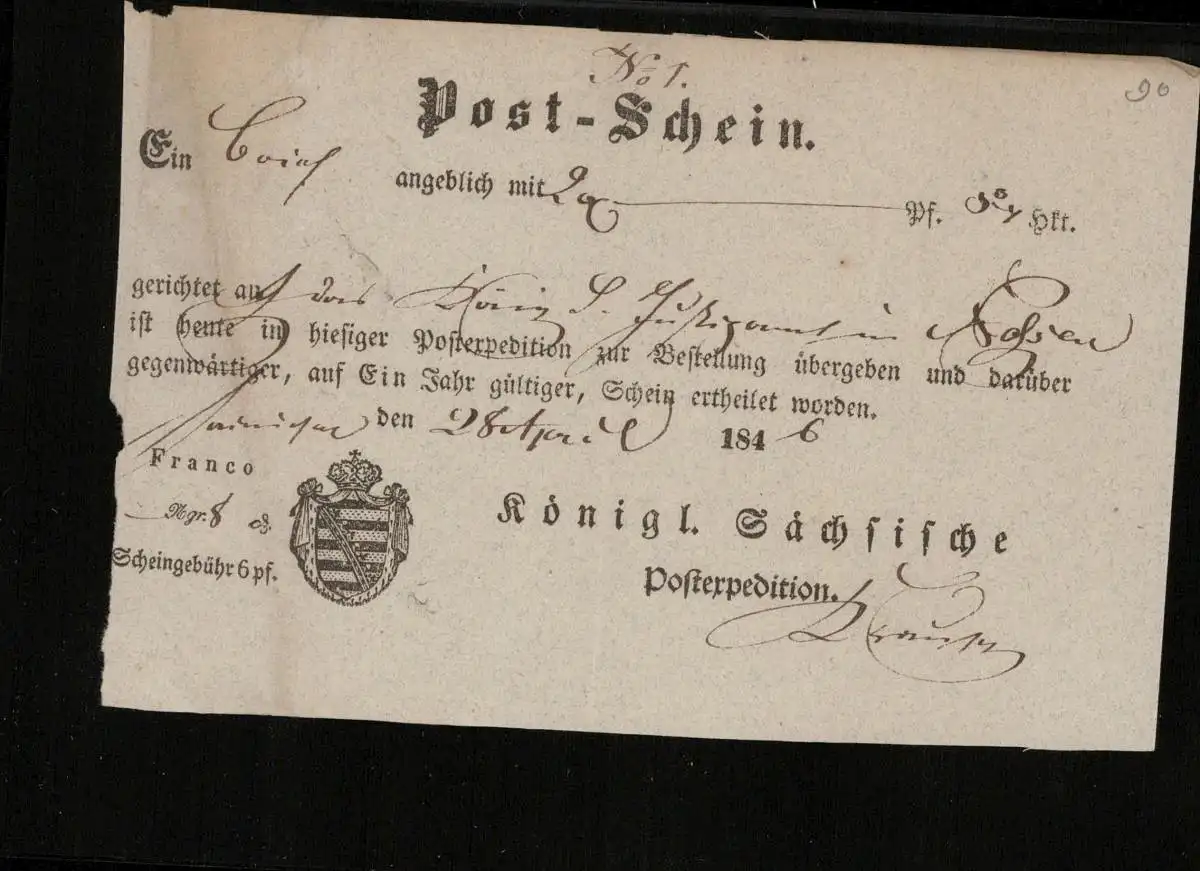 No 1.
90
Post-Schein.
Ein Brief
angeblich mit Pf. Lth.
gerichtet an das König S. Justizamt in Nossen
ist heute in hiesiger Postexpedition zur Bestellung übergeben und darüber
gegenwärtiger, auf Ein Jahr gültiger, Schein ertheilet worden.
Hainichen den 28 April 1846
Franco
Ngr. 8
Scheingebühr 6 pf.
Königl. Sächsische
Postexpedition.